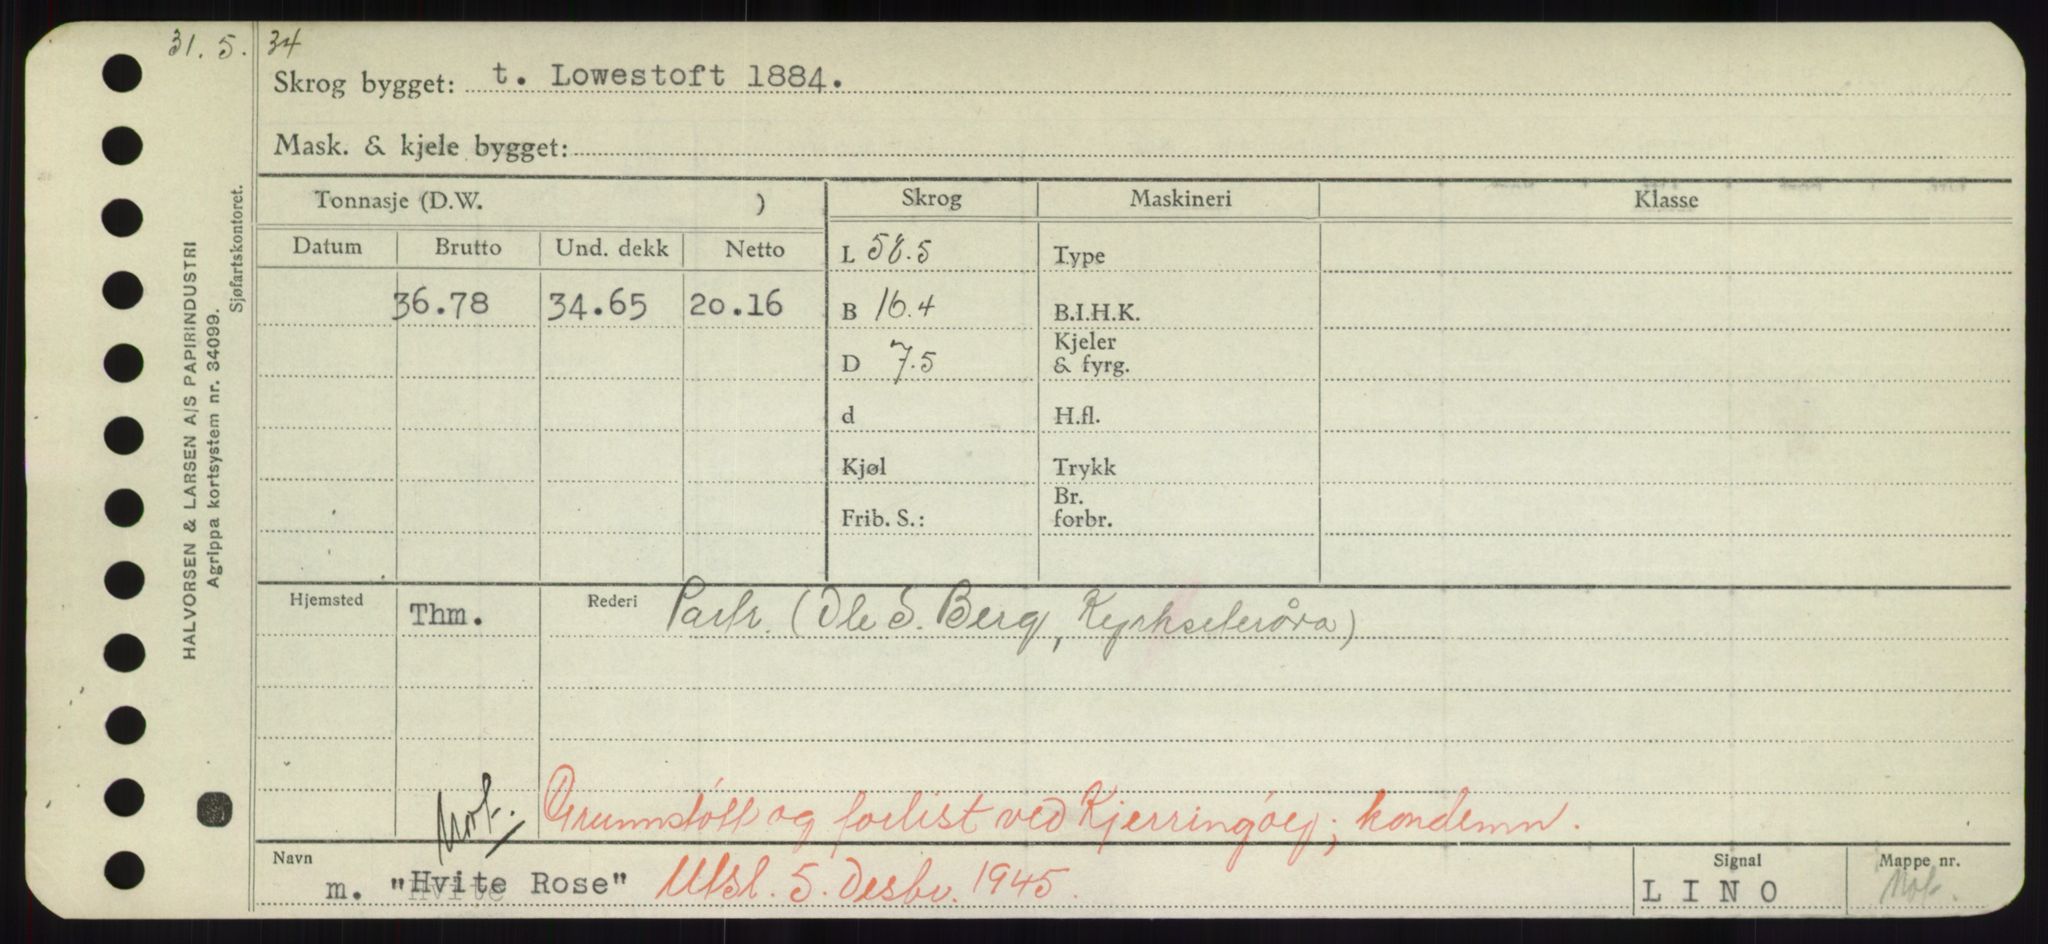 31. 5. 34
Skrog bygget: t. Lowestoft 1884.
Mask. & kjele bygget:
Tonnasje (D.W. ) Skrog Maskineri Klasse
Datum Brutto Und. dekk Netto L 58.5 Type
36.78 34.65 20.16 B 16.4 B.I.H.K.
D 7.5 Kjeler & fyrg.
d H.fl.
Kjøl Trykk
Frib. S.: Br. forbr.
Hjemsted Thm. Rederi Partr. (Ole S. Berg, Kyrksæterøra)
Mot. Grunnstött og forlist ved Kjerringöy; kondemn.
Navn m. "Hvite Rose" Utsl. 5. Desbr. 1945. Signal L I N O Mappe nr. Mot.
HALVORSEN & LARSEN A/S PAPIRINDUSTRI
Agrippa kortsystem nr. 34099.
Sjøfartskontoret.